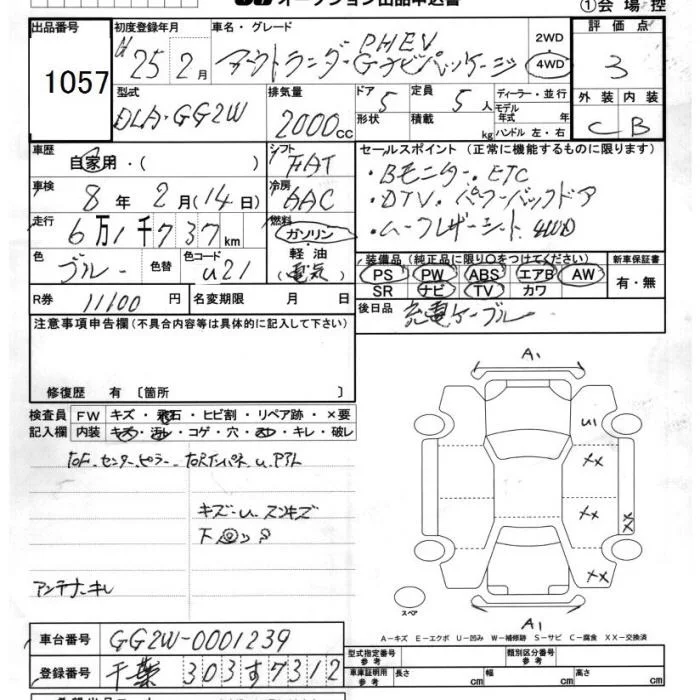 オークション出品申込書
①会場控
出品番号
1057
初度登録年月
H25年2月
車名・グレード
PHEV
アウトランダー Gナビパッケージ
2WD
4WD
評価点
3
外装 内装
C B
型式
DLA-GG2W
排気量
2000cc
ドア 5
形状
定員 5人
積載 kg
ディーラー・並行
モデル年式 年
ハンドル 左・右
車歴
自家用・( )
シフト
FAT
セールスポイント (正常に機能するものに限ります)
・Bモニター・ETC
・DTV・パワーバックドア
・ムーフレザーシート 4WD
車検
8年2月(14日)
冷房
AAC
走行
6万1千737km
燃料
ガソリン
軽・油
(電気)
色
ブルー
色替
色コード
U21
装備品 (純正品に限り○をつけてください)
PS PW ABS エアB AW
SR ナビ TV カワ
新車保証書
有・無
R券 11100円
名変期限 月 日
後日品 充電ケーブル
注意事項申告欄(不具合内容等は具体的に記入して下さい)
修復歴 有 〔箇所 〕
検査員記入欄
FW キズ・飛石・ヒビ割・リペア跡・×要
内装 キズ・汚レ・コゲ・穴・スレ・キレ・破レ
キズ・U・スリキズ
アンテナキレ
A1
U1
XX
XX
XX
XX
A1
スペア
A−キズ E−エクボ U−凹み W−補修跡 S−サビ C−腐食 XX−交換済
車台番号 GG2W-0001239
登録番号 千葉 303 す 7312
型式指定番号 参考
類別区分番号 参考
車庫証明用 参考
長さ cm 幅 cm 高さ cm